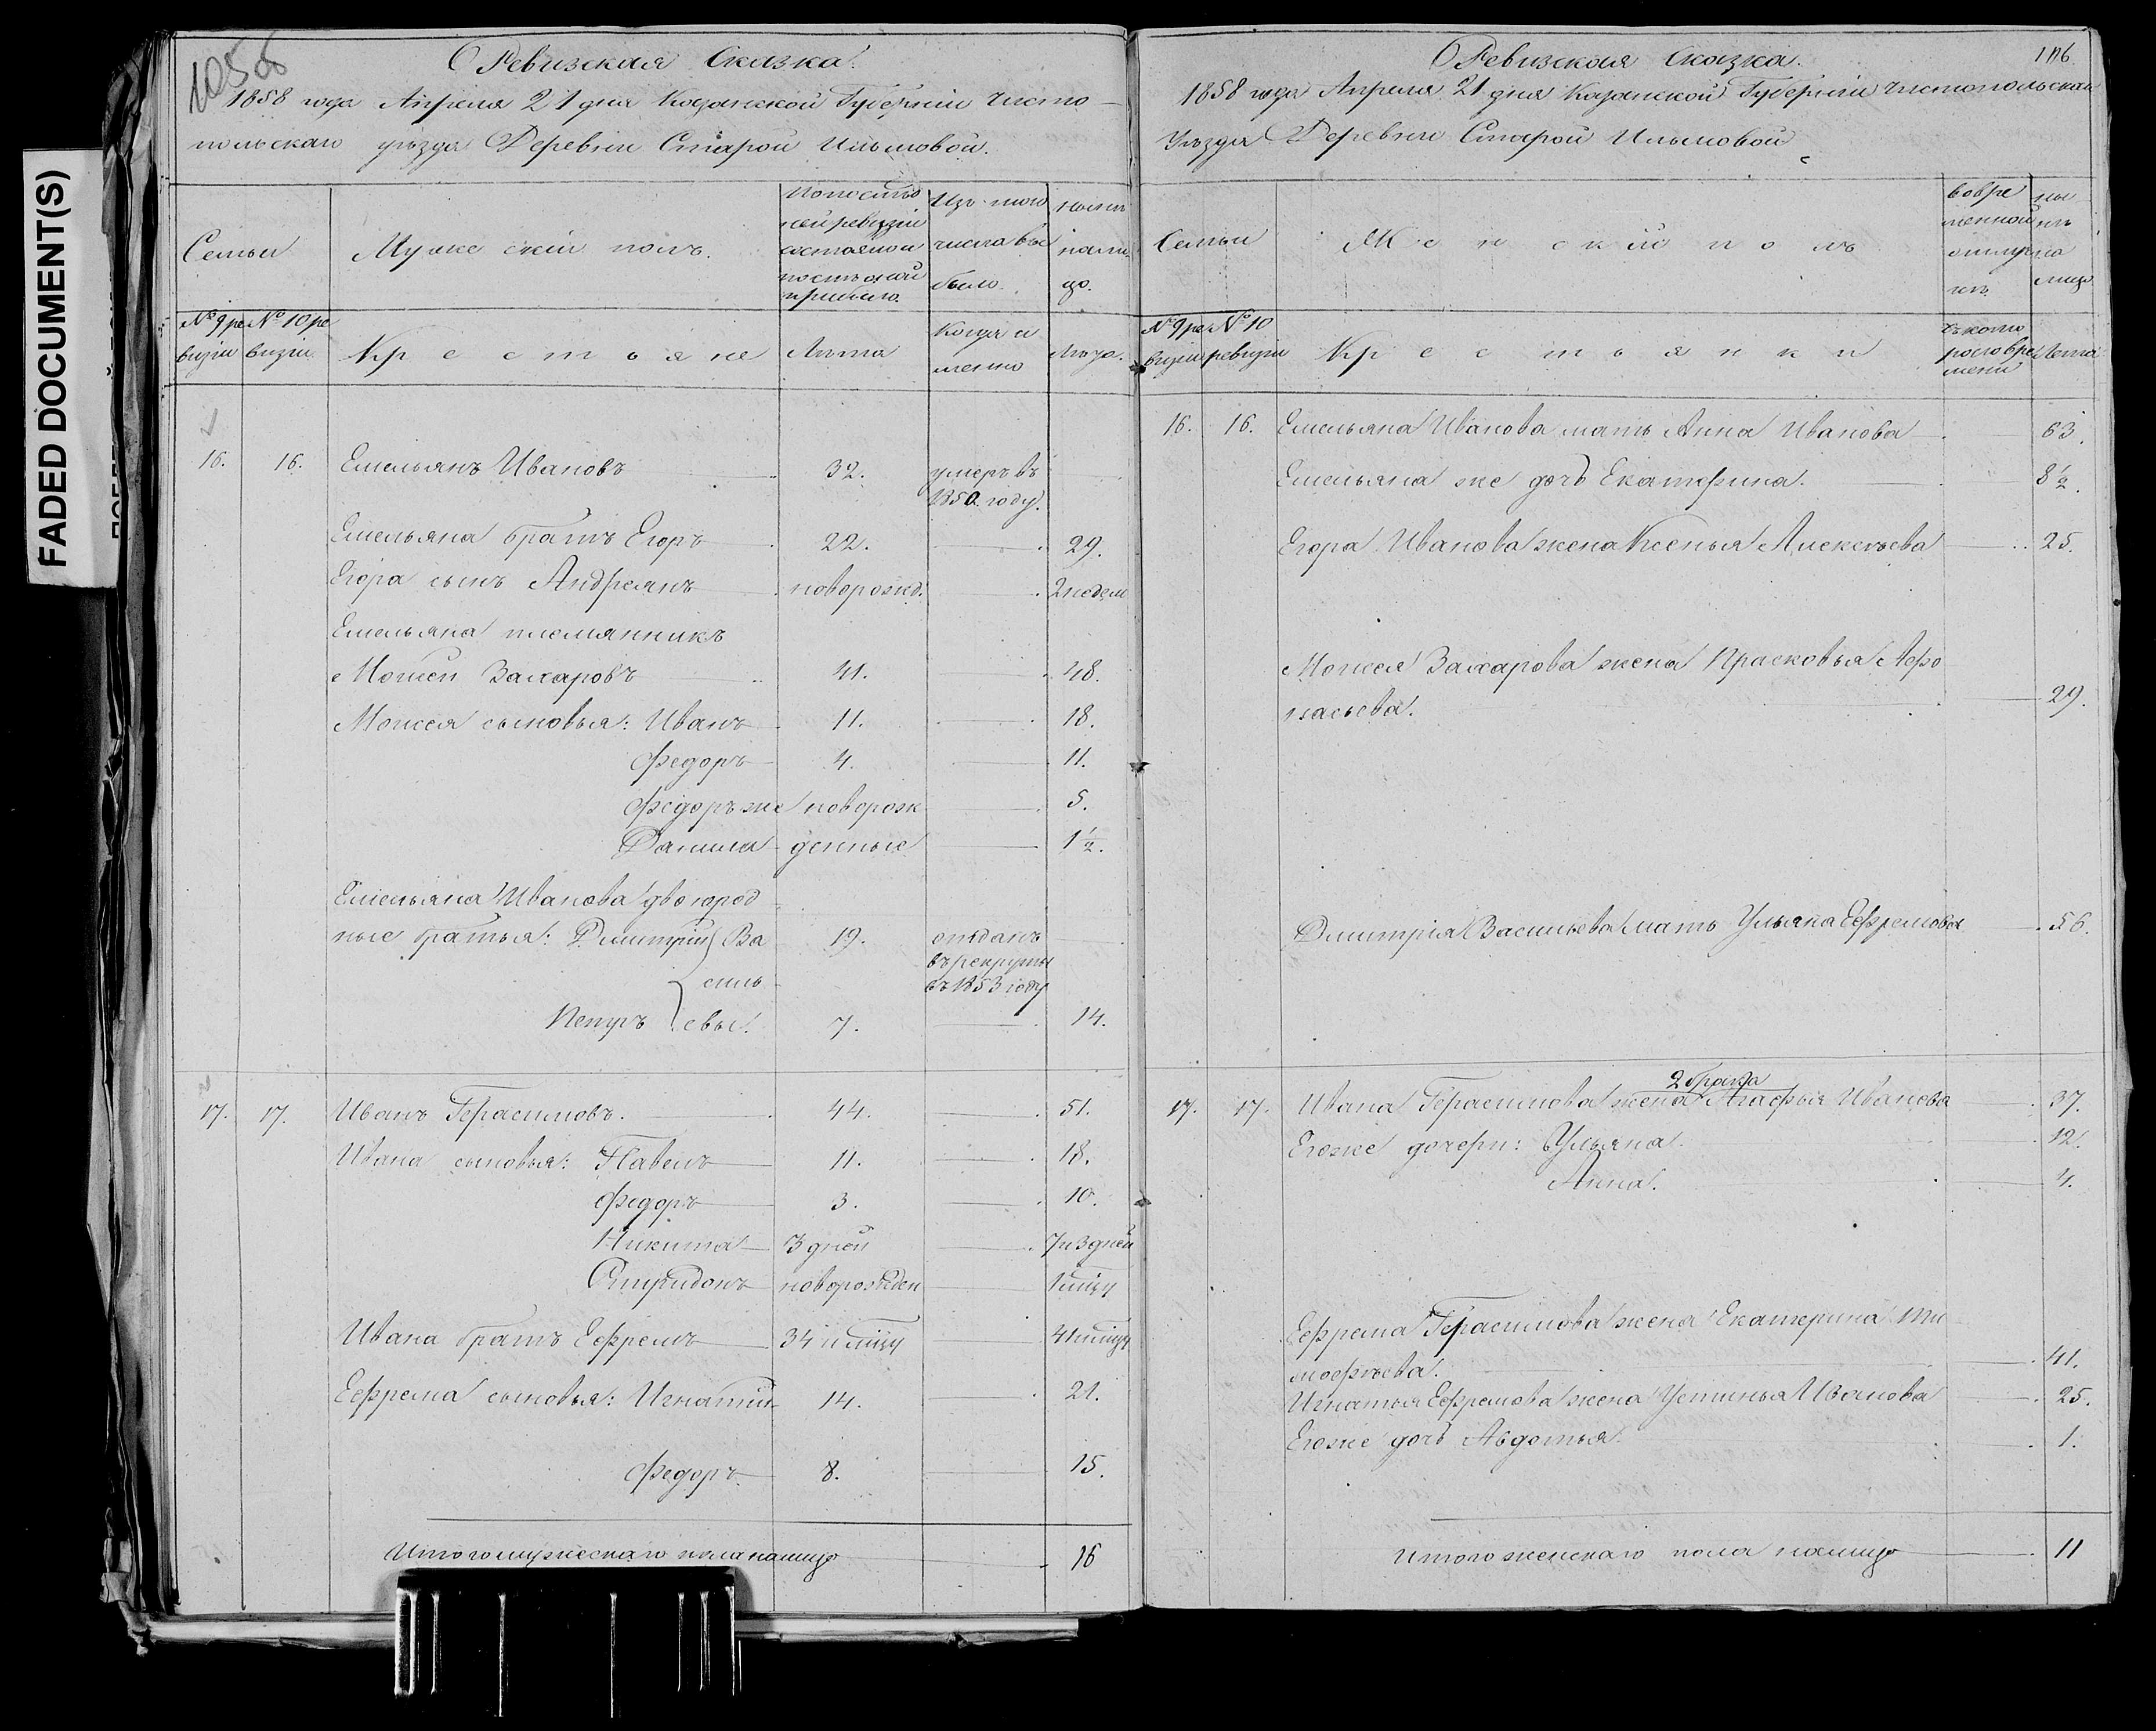 FADED DOCUMENT(S)
Ревизская Сказка.
1858 года Апреля 21 дня Казанской Губернiи Чисто
польскаго уезда Деревни Старой Ильмовой.
Семьи
Мужескiй полъ.
По послѣд
ней ревизiи
состояло и
послѣ оной
прибыло.
Изъ того
числа вы
было
нынѣ
на ли
цо.
№ 9 ре
визiи
№ 10 ре
визiи
Крестьяне
Лѣта
Когда и
менно
Лѣта.
16. 16. Емельянъ Ивановъ 32. умеръ въ
1850 году.
Емельяна братъ Егоръ 22. 29.
Егора сынъ Андреянъ новорожд. 2 недел
Емельяна племянникъ
Моисей Захаровъ 41. 48.
Моисея сыновья: Иванъ 11. 18.
Федоръ 4. 11.
Федоръ же новорож 5.
Данила денные 1 1/2.
Емельяна Иванова двоюрод
ные братья: Дмитрiй Ва 19. отданъ
въ рекруты
силь въ 1853 году
Петръ евы. 7. 14.
17. 17. Иванъ Герасимовъ. 44. 51.
Ивана сыновья: Павелъ 11. 18.
Федоръ 3. 10.
Никита 3 дней 7 и 3 дней
Спиридонъ новорожден
Ивана братъ Ефремъ 34
Ефрема сыновья: Игнатiй 14. 21.
Федоръ 8. 15.
Итого мужескаго пола налицо 16
Ревизская Сказка.
1858 года Апреля 21 дня Казанской Губернiи Чистопольскаго
Уѣзда Деревни Старой Ильмовой
Семьи
Женскiй полъ
во вре
менной
отлуч
кѣ
ны
нѣ
на
лицо
№ 9 ре
визiи
№ 10
ревизiи
Крестьянки
съ кото
раго вре
мени
Лѣта
16. 16. Емельяна Иванова мать Анна Иванова 63.
Емельяна же дочь Екатерина. 8 1/2.
Егора Иванова жена Ксенья Алексѣева 25.
Моисея Захарова жена Прасковья Афо
насьева. 29.
Дмитрiя Васильева мать Ульяна Ефремова 56.
2 брака
17. 17. Ивана Герасимова жена Агафья Иванова 37.
Его же дочери: Ульяна. 12.
Анна. 4.
Ефрема Герасимова жена Екатерина Ти
мофѣева. 41.
Игнатья Ефремова жена Устинья Иванова 25.
Его же дочь Авдотья. 1.
Итого женскаго пола налицо 11